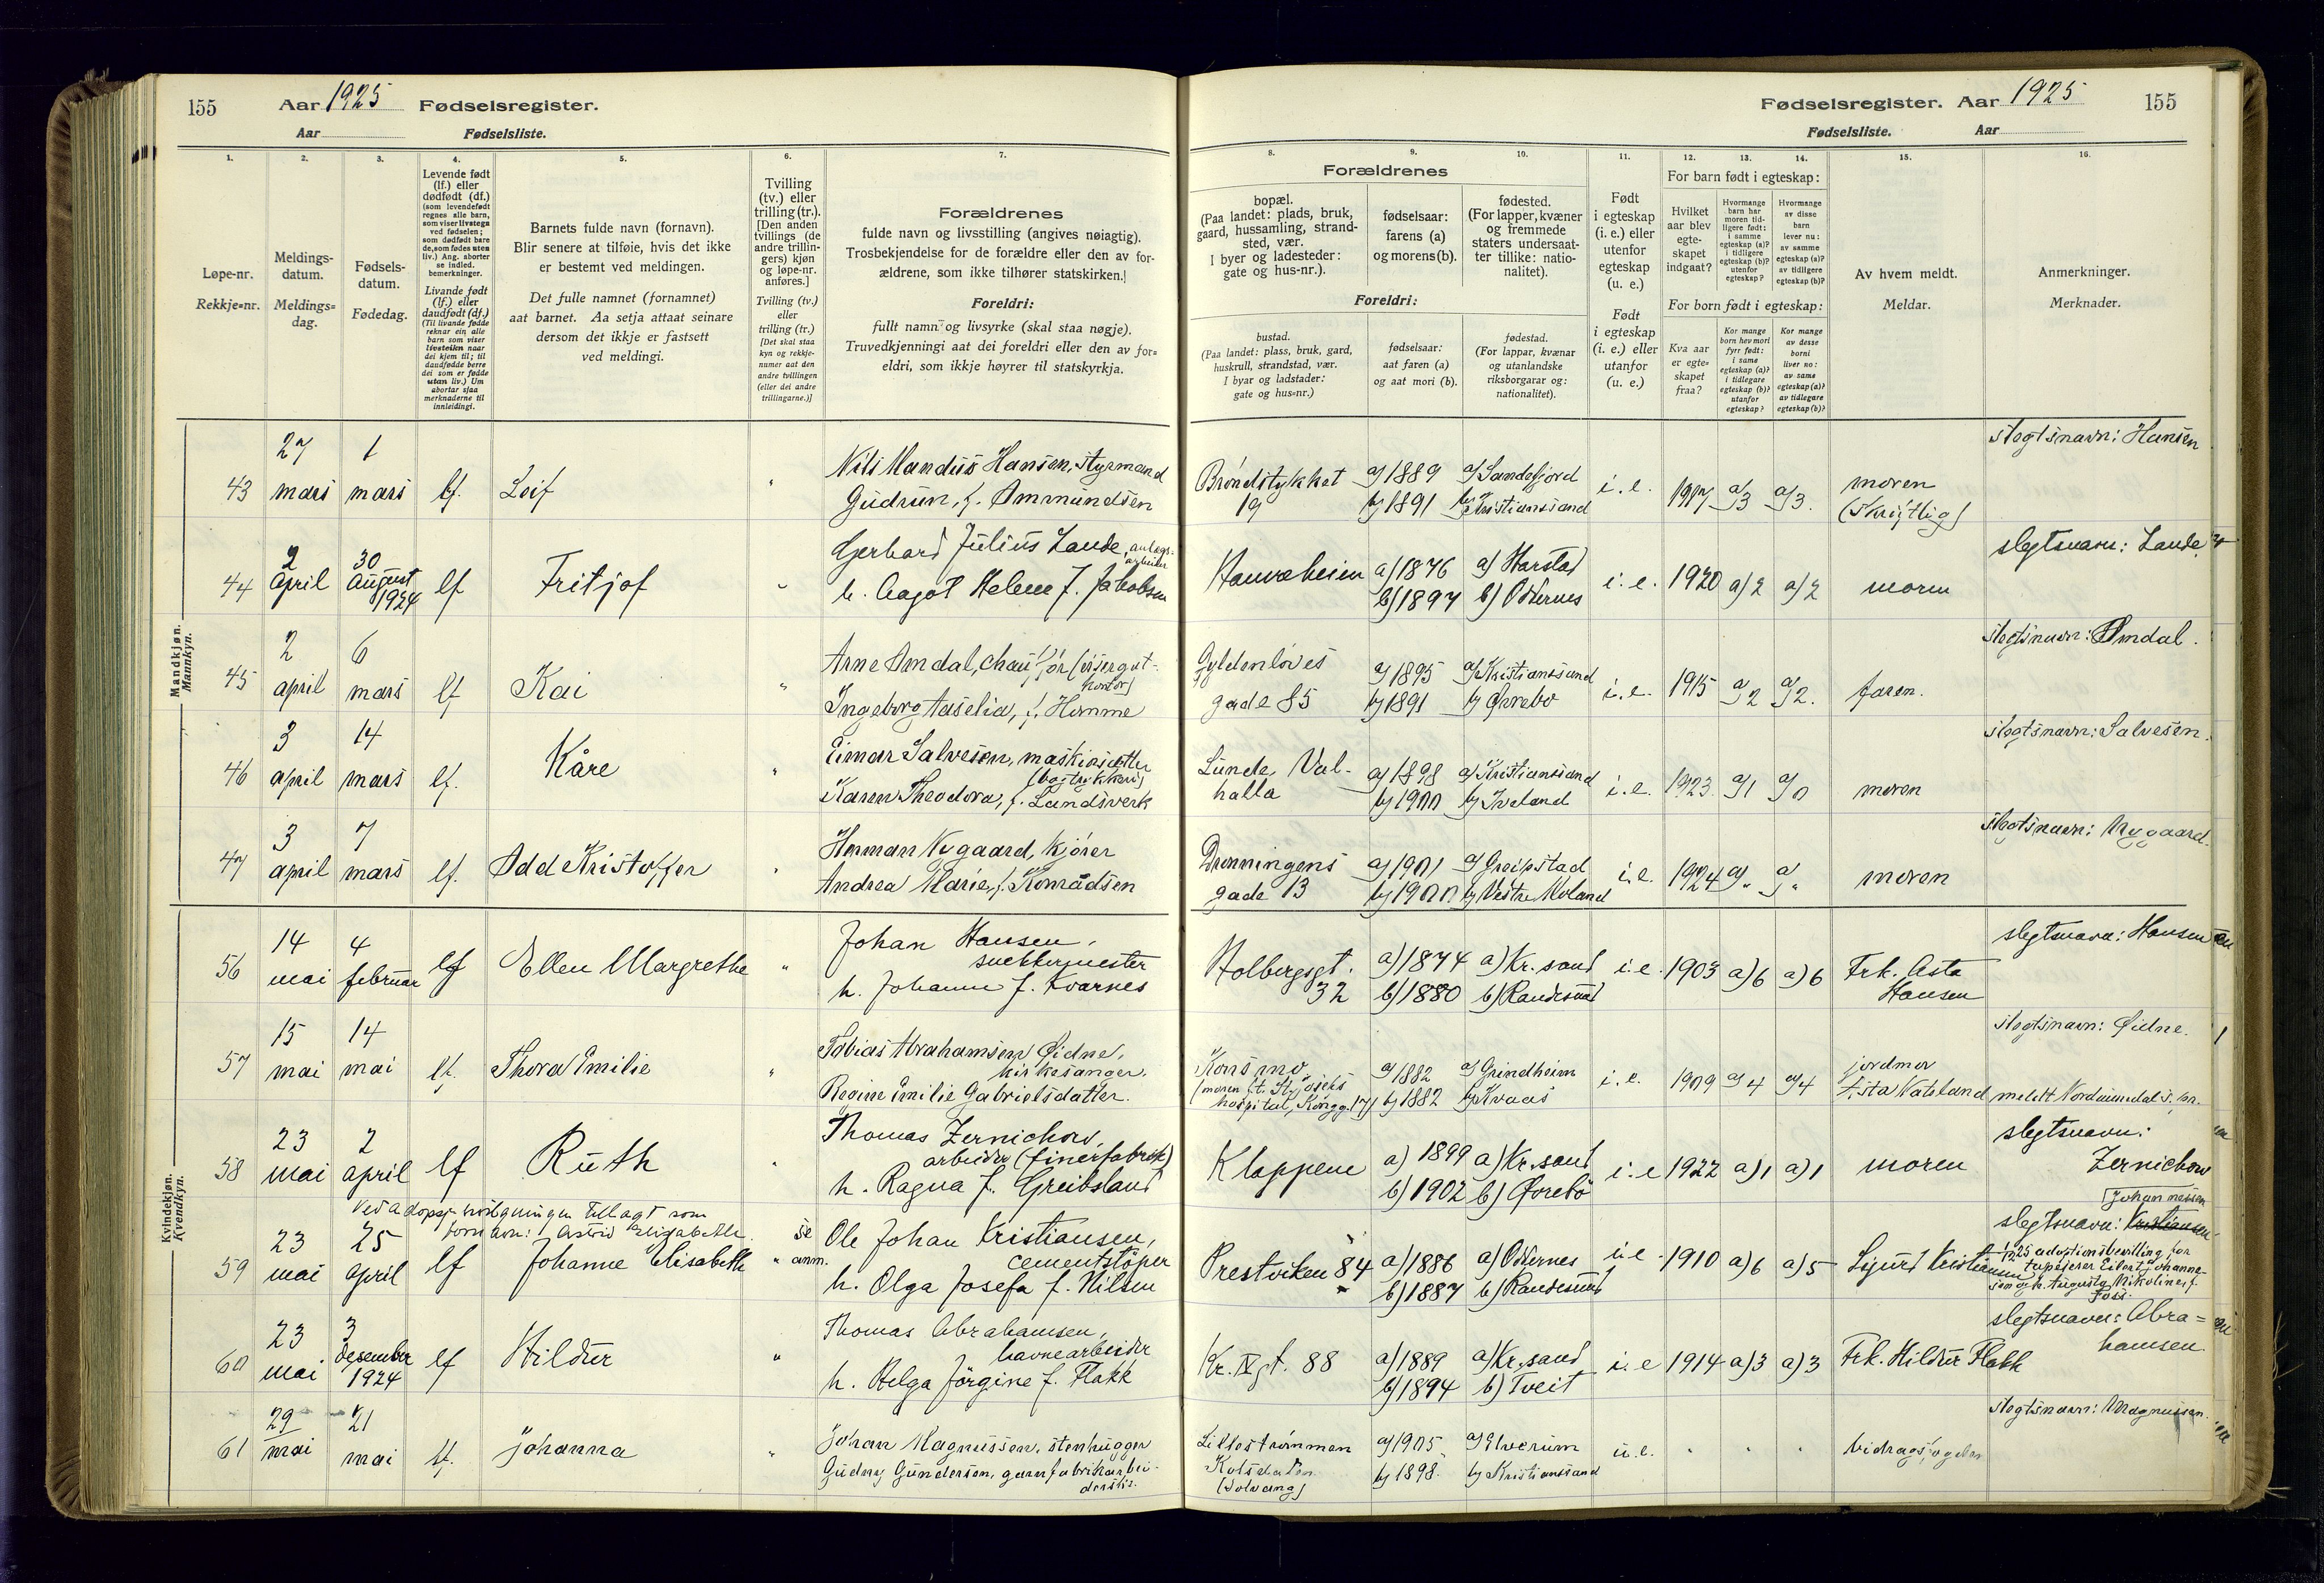 155 Aar 1925 Fødselsregister.
Aar Fødselsliste.
Fødselsregister. Aar 1925 155
Fødselsliste. Aar
1. 2. 3. 4. 5. 6. 7.
Løpe-nr.
Rekkje=nr.
Meldings-
datum.
Meldings=
dag.
Fødsels-
datum.
Fødedag.
Levende født
(lf.) eller
dødfødt (df.)
(som levendefødt
regnes alle barn,
som viser livstegn
ved fødselen;
som dødfødt bare
de, som fødes uten
liv.) Ang. aborter
se indled.
bemerkninger.
Livande født
(lf.) eller
daudfødt (df.)
(Til livande fødde
reknar ein alle
barn som viser
livsteikn naar
dei kjem til; til
daudfødde berre
dei som er fødde
utan liv.) Um
abortar sjaa
merknaderne til
innleidingi.
Barnets fulde navn (fornavn).
Blir senere at tilføie, hvis det ikke
er bestemt ved meldingen.
Det fulle namnet (fornamnet)
aat barnet. Aa setja attaat seinare
dersom det ikkje er fastsett
ved meldingi.
Tvilling
(tv.) eller
trilling (tr.).
[Den anden
tvillings (de
andre trillin-
gers) kjøn
og løpe-nr.
anføres.]
Tvilling (tv.)
eller
trilling (tr.)
[Det skal staa
kyn og rekkje-
numer aat den
andre tvillingen
(eller dei andre
trillingarne.)]
Forældrenes
fulde navn og livsstilling (angives nøiagtig).
Trosbekjendelse for de forældre eller den av for-
ældrene, som ikke tilhører statskirken.]
Foreldri:
fullt namn og livsyrke (skal staa nøgje).
Truvedkjenningi aat dei foreldri eller den av for=
eldri, som ikkje høyrer til statskyrkja.
8. 9. 10. 11. 12. 13. 14. 15. 16.
Forældrenes
bopæl.
(Paa landet: plads, bruk,
gaard, hussamling, strand-
sted, vær.
I byer og ladesteder:
gate og hus-nr.).
fødselsaar:
farens (a)
og morens (b).
fødested.
(For lapper, kvæner
og fremmede
staters undersaat-
ter tillike: natio-
nalitet).
Foreldri:
bustad.
(Paa landet: plass, bruk, gard,
huskrull, strandstad, vær.
I byar og ladstader:
gate og hus=nr.)
fødselsaar:
aat faren (a)
og aat mori (b).
fødestad.
(For lappar, kvænar
og utanlandske
riksborgarar og:
nationalitet).
Født
i egteskap
(i. e.) eller
utenfor
egteskap
(u. e.)
Født
i egteskap
(i. e.) eller
utanfor
(u. e.)
For barn født i egteskap:
Hvilket
aar blev
egte-
skapet
indgaat?
Hvormange
barn har
moren tid-
ligere født:
i samme
egteskap (a)?
i tidligere
egteskap (b)?
utenfor
egteskap?
Hvormange
av disse
barn
lever nu:
av samme
egteskap (a)?
av tidligere
egteskap (b)?
For born født i egteskap:
Kva aar
er egte-
skapet
fraa?
Kor mange
born hev mori
fyrr født:
i same
egteskap (a)?
i tidlegare
egteskap (b)?
utanfor
egteskap?
Kor mange
av desse
borni
liver no:
av same
egteskap (a)?
av tidlegare
egteskap (b)?
Av hvem meldt.
Meldar.
Anmerkninger.
Merknader.
Mandkjøn.
Mannkyn.
27 1 slegtsnavn: Hansen
43 mars mars lf. Leif " Nils Mandius Hansen, styrmand
Gudrun, f. Ommundsen
Brøndstykket 19 a) 1889 b) 1891 a) Sandefjord b) Kristianssand i. e. 1917 a) 3 a) 3. moren (skriftlig)
2 30 slegtsnavn: Lande
44 april august 1924 lf Fritjof " Gerhard Julius Lande, anlægs-
arbeider
h. Aagot Helene f. Jakobsen
a) 1876 b) 1897 a) Harstad b) Oddernes i. e. 1920 a) 2 a) 2 moren
2 6 slegtsnavn: Omdal.
45 april mars lf Kai " Arne Omdal, chauffør
Ingeborg Aaselia, f. Homme
Gyldenløves gade 85 a) 1895 b) 1891 a) Kristianssand b) Øvrebø i. e. 1915 a) 2 a) 2. faren.
3 14 slegtsnavn: Salvesen.
46 april mars lf. Kåre " Einar Salvesen, maskinsætter
(bogtrykkeri)
Karen Theodora, f. Landsverk
Lunde, Valhalla a) 1898 b) 1900 a) Kristianssand b) Iveland i. e. 1923. a) 1 a) 0 moren
3 7 slegtsnavn: Nygaard.
47 april mars lf. Odd Kristoffer " Herman Nygaard, kjører
Andrea Marie, f. Konradsen
Dronningens gade 13 a) 1901 b) 1900 a) Greipstad b) Vestre Moland i. e. 1924 a) " a) " moren
Kvindekjøn.
Kvendkyn.
14 4 slegtsnavn: Hansen
56 mai februar lf Ellen Margrethe " Johan Hansen,
snekkermester
h. Johanne f. Kvarnes
Holbergsgt. 32 a) 1874 b) 1880 a) Kr.sand b) Randesund i. e. 1903 a) 6 a) 6 Frk. Asta Hansen
15 14 slegtsnavn: Øidne.
57 mai mai lf. Thora Emilie " Tobias Abrahamsen Øidne,
kirkesanger.
Regine Emilie Gabrielsdatter.
Konsmo (moren t. St. Josefs hospital, Kongg. 17) a) 1882 b) 1882 a) Grindheim b) Kvaas i. e. 1909 a) 4 a) 4 jordmor Vateland
23 2 slegtsnavn:
58 mai april lf Ruth " Thomas Zernichow,
arbeider (finerfabrik)
h. Ragna f. Greibsland
Kloppene a) 1899 b) 1902 a) Kr.sand b) Øvrebö i. e 1922 a) 1 a) 1 moren Zernichow
Ved adopsj. bevilgningen tillagt som
fornavn: Astrid Elisabeth. se anm. [Johannesen
23 25 slegtsnavn: Kristiansen
59 mai april lf Johanne Elisabeth " Ole Johan Kristiansen,
cementstöper
h. Olga Josefa f. Nilsen
Prestviken 84 a) 1886 b) 1887 a) Oddernes b) Randesund i. e. 1910 a) 6 a) 5 Sigurd Kristiansen
adoptionsbevilling for
tapetserer Eilert Johanne-
sen og h. Augusta Nikoline f.
Foss.
23 3 slegtsnavn: Abra=
hamsen
60 mai desember 1924 lf Hildur " Thomas Abrahamsen,
havnearbeider
h. Helga Jörgine f. Flakk
Kr. IV gt. 88 a) 1889 b) 1894 a) Kr.sand b) Tveit i. e 1914 a) 3 a) 3 Frk. Hildur Flakk
29 21 slegtsnavn: Magnussen.
61 mai mai lf. Johanna " Johan Magnussen, stenhugger
Gudny Gundersen, garnfabrikarbei-
derske.
Lillestrømmen Kolsdalen (Solvang) a) 1905. b) 1898. a) Elverum b) Kristianssand u. e. " " " bidragsfogden